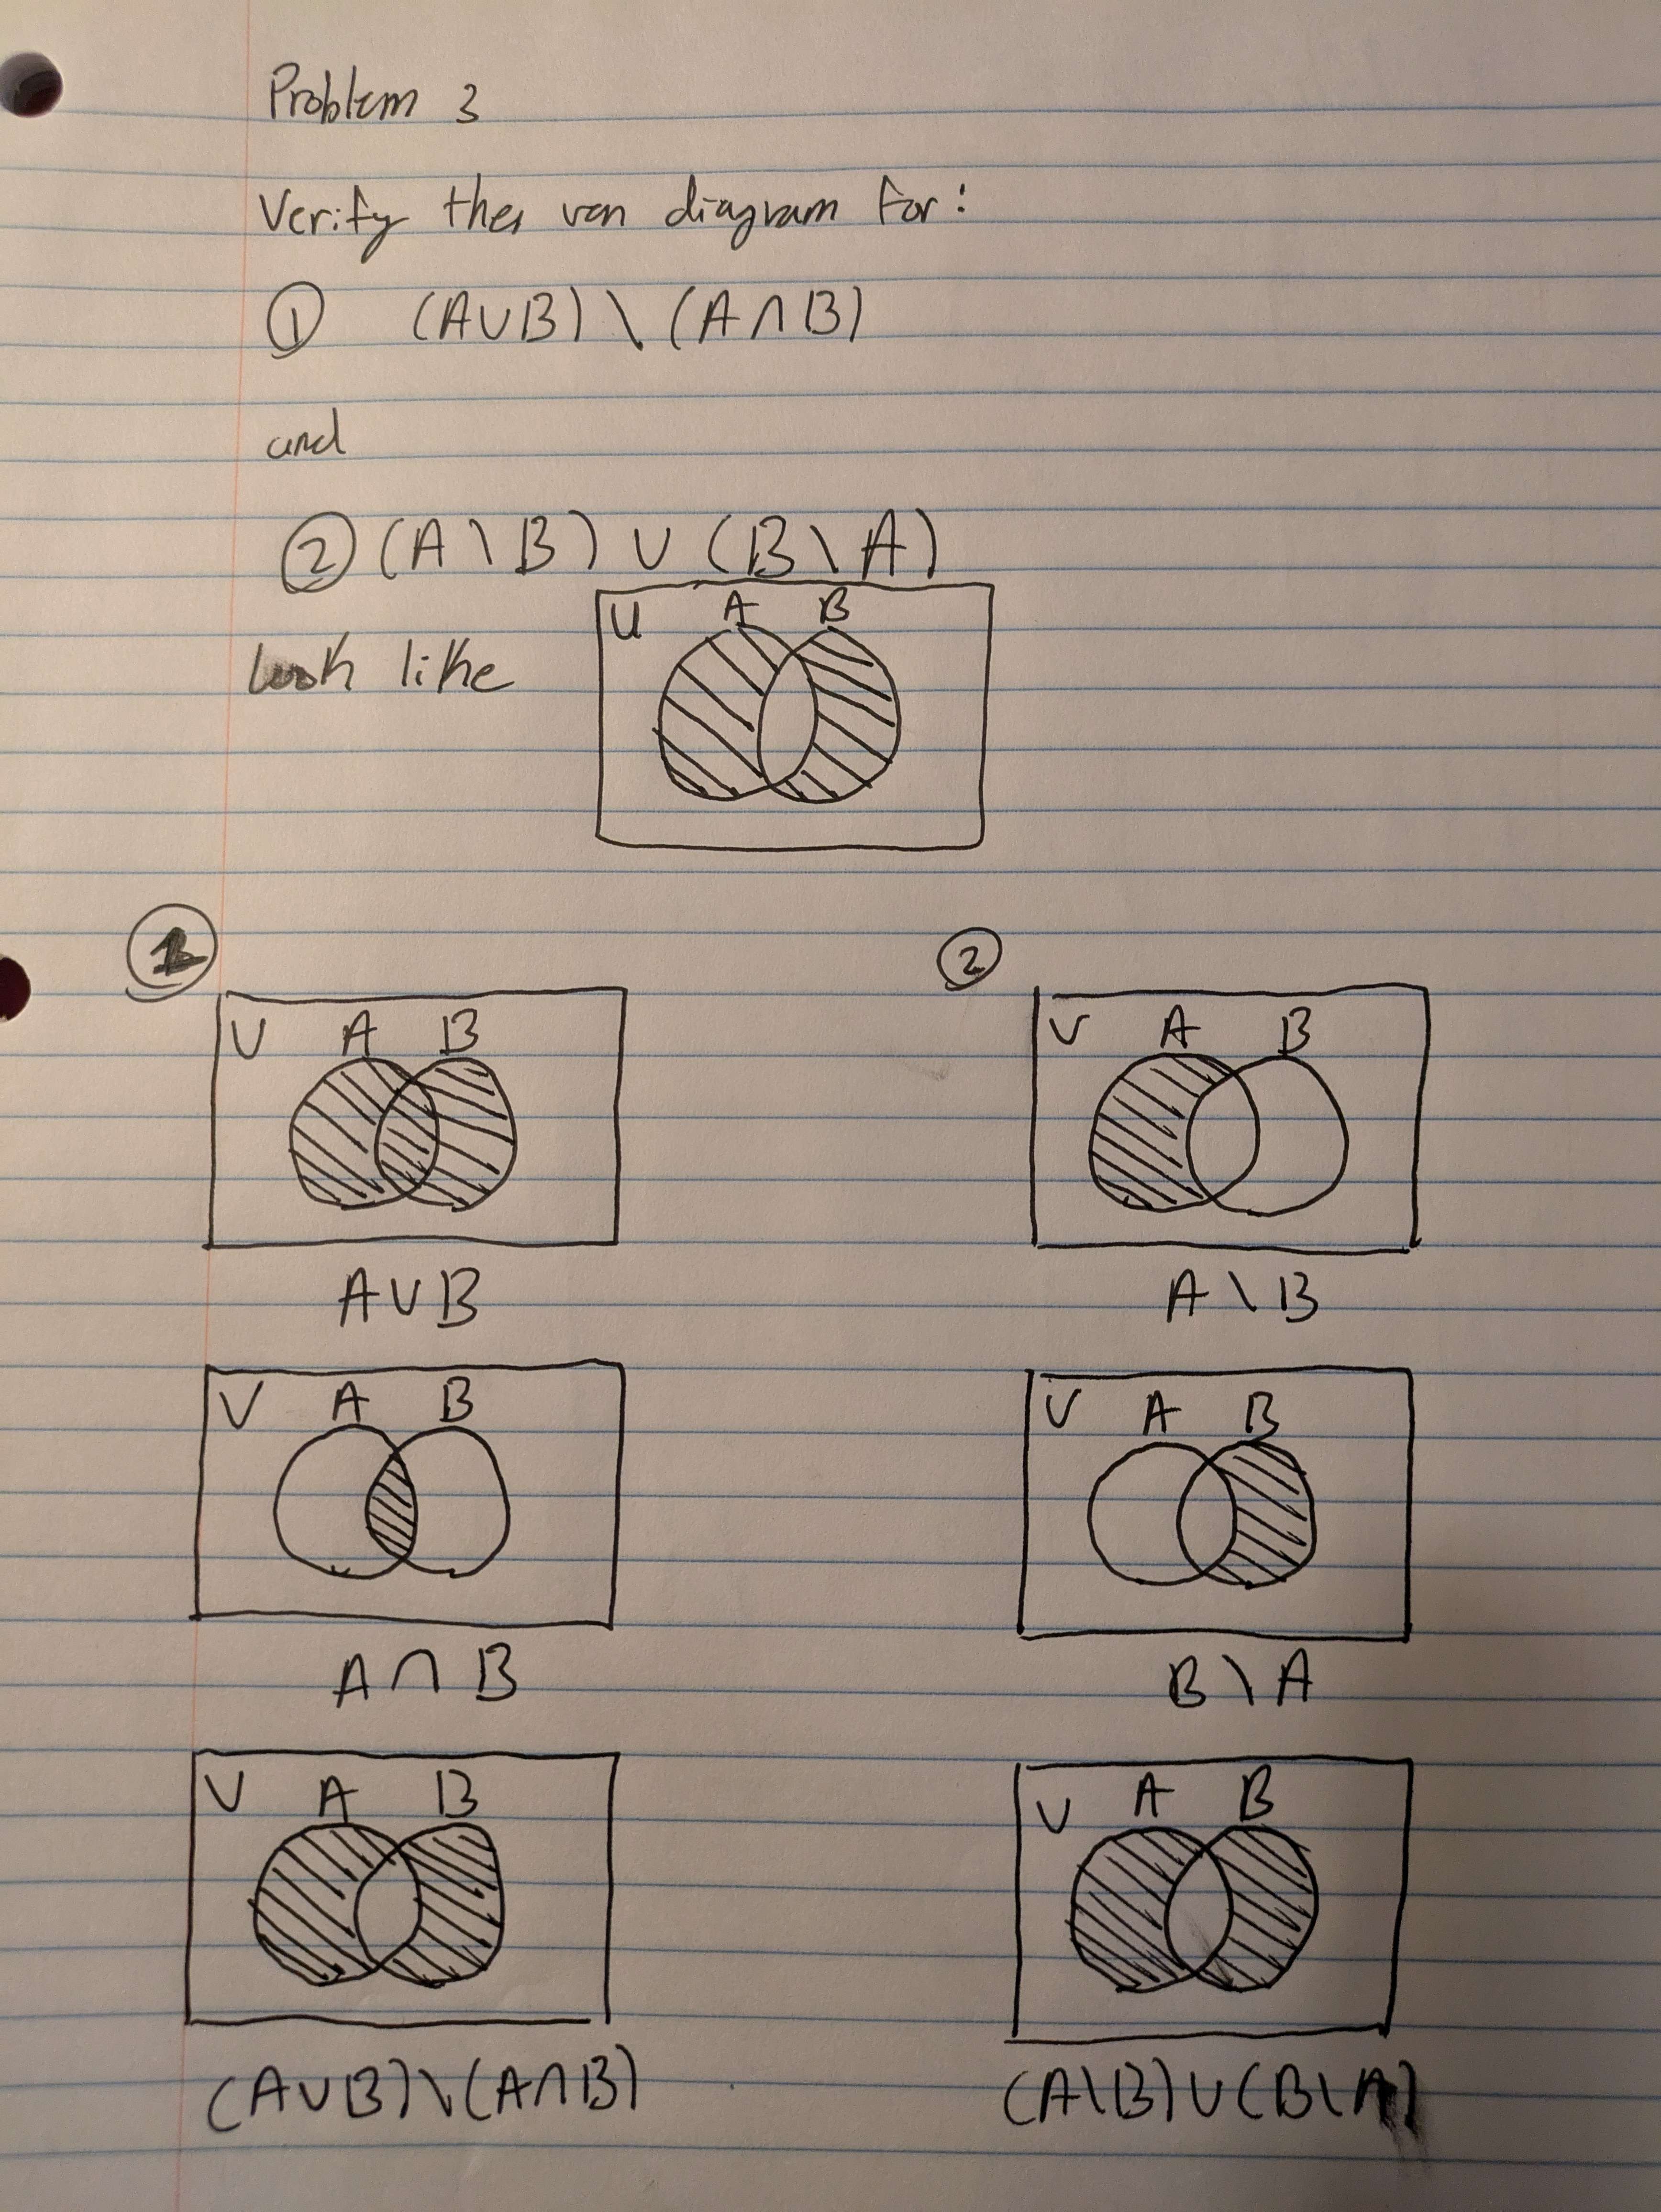 Problem 3
Verify the ven diagram for:
① (A∪B) \ (A∩B)
and
② (A \ B) ∪ (B \ A)
U A B
look like
① ②
U A B
U A B
A∪B
A \ B
U A B
U A B
A ∩ B
B \ A
U A B
U A B
(A∪B)\(A∩B)
(A\B)∪(B\A)